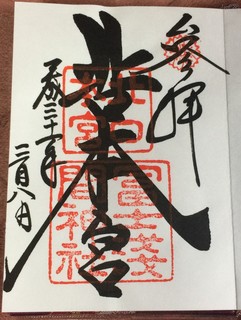 参拝
北口本宮
平成三十一年
二月八日
北口
本宮
冨士浅
間神社